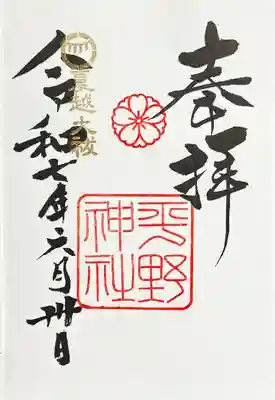 奉拝
平野
神社
夏越大祓
令和七年六月卅日